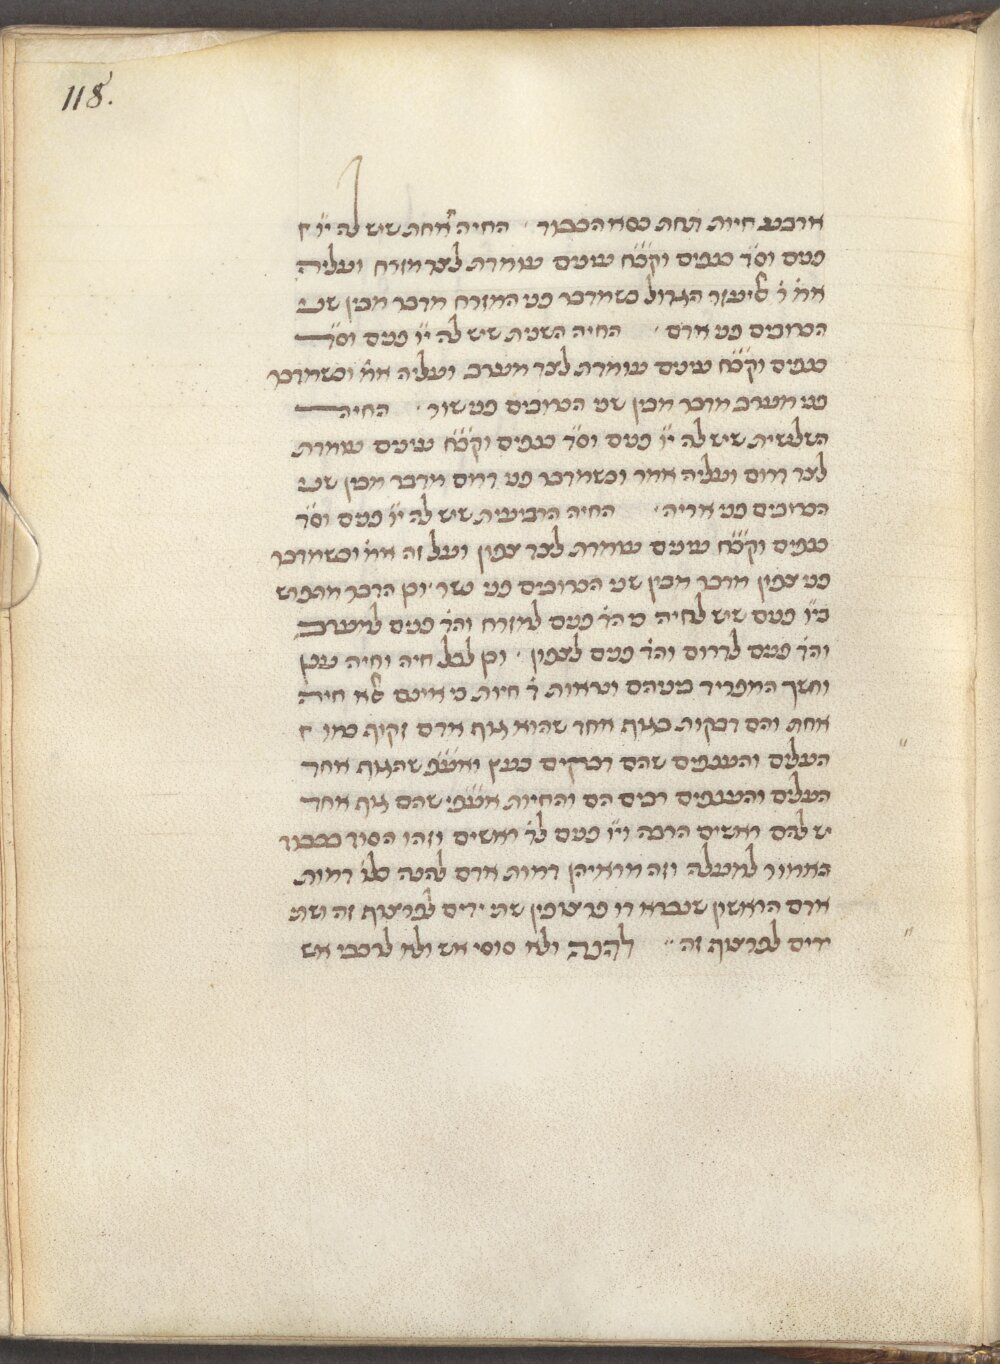 118.
ארבע חיות תחת כסא הכבוד · החיה האחת שיש לה י״ו
פנים וס״ד כנפים וקכ״ח עינים עומדת לצד מזרח ועליה
אמ׳ ר׳ אליעזר הגדול כשמדבר פני המזרח מדבר מבין שני
הכרובים פני אדם · החיה השנית שיש לה י״ו פנים וס״ד
כנפים וקכ״ח עינים עומדת לצד מערב ועליה אמ׳ וכשמדבר
פני מערב מדבר מבין שני הכרובים פני שור · החיה
השלשית שיש לה י״ו פנים וס״ד כנפים וקכ״ח עינים עומדת
לצד דרום ועליה אמר וכשמדבר פני דרום מדבר מבין שני
הכרובים פני אריה · החיה הרביעית שיש לה י״ו פנים וס״ד
כנפים וקכ״ח עינים עומדת לצד צפון ועל זה אמ׳ וכשמדבר
פני צפון מדבר מבין שני הכרובים פני נשר · וכן הדבר מתפרש
בי״ו פנים שיש לחיה מהד׳ פנים למזרח והד׳ פנים למערב
והד׳ פנים לדרום והד׳ פנים לצפון · וכן לכל חיה וחיה ענן
וחשך המפריד ביניהם ונראות ד׳ חיות כי אינם אלא חיה
אחת והם דבקות בגוף אחד שהוא גוף אדם זקוף כמו
העלים והענפים שהם דבקים בעץ ואע״פ שהגוף אחד
העלים והענפים רבים הם והחיות אע״פי שהם גוף אחד
יש להם ראשים הרבה וי״ו פנים לד׳ ראשים וזהו הסוד בכבוד
כאמור למעלה וזה מראיהן דמות אדם להנה כלו׳ דמות
אדם הראשון שנברא דו פרצופין שתי ידים לפרצוף זה ושתי
ידים לפרצוף זה ״ להנה ולא סוסי אש ולא לרכבי אש